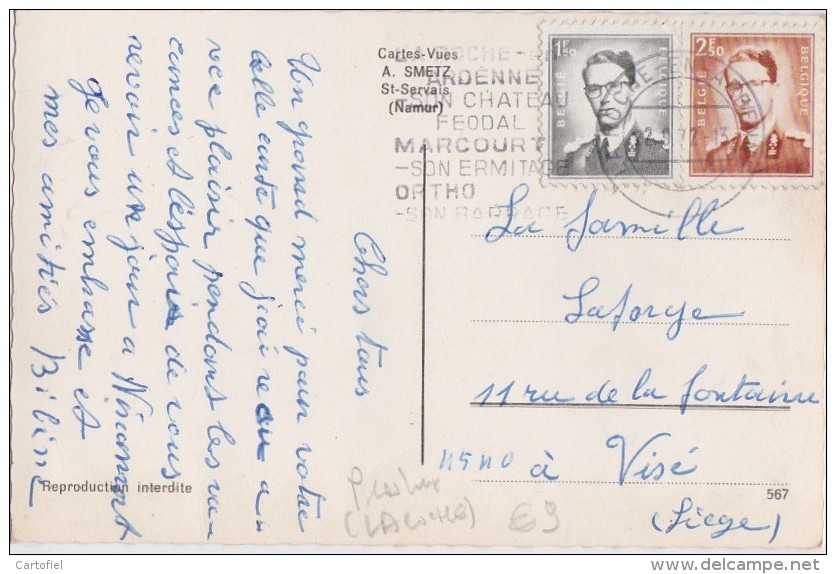 Cartes-Vues
A. SMETZ
St-Servais
(Namur)
LA ROCHE-EN
ARDENNE
-SON CHATEAU
FEODAL
MARCOURT
-SON ERMITAGE
ORTHO
-SON BARRAGE
1F50
BELGIE
BELGIQUE
2F50
BELGIË
BELGIQUE
Chers tous
Un grand merci pour votre
belle carte que j'ai reçu a-
vec plaisir pendant les va-
cances et l'espoir de vous
revoir un jour a Nisramont
Je vous embrasse et
mes amitiés Bibine
La famille
Laforge
11 rue de la fontaine
4540 à Visé
(Liege)
Reproduction interdite
567
(LA ROCHE) €9
Cartofiel
www.delcampe.net